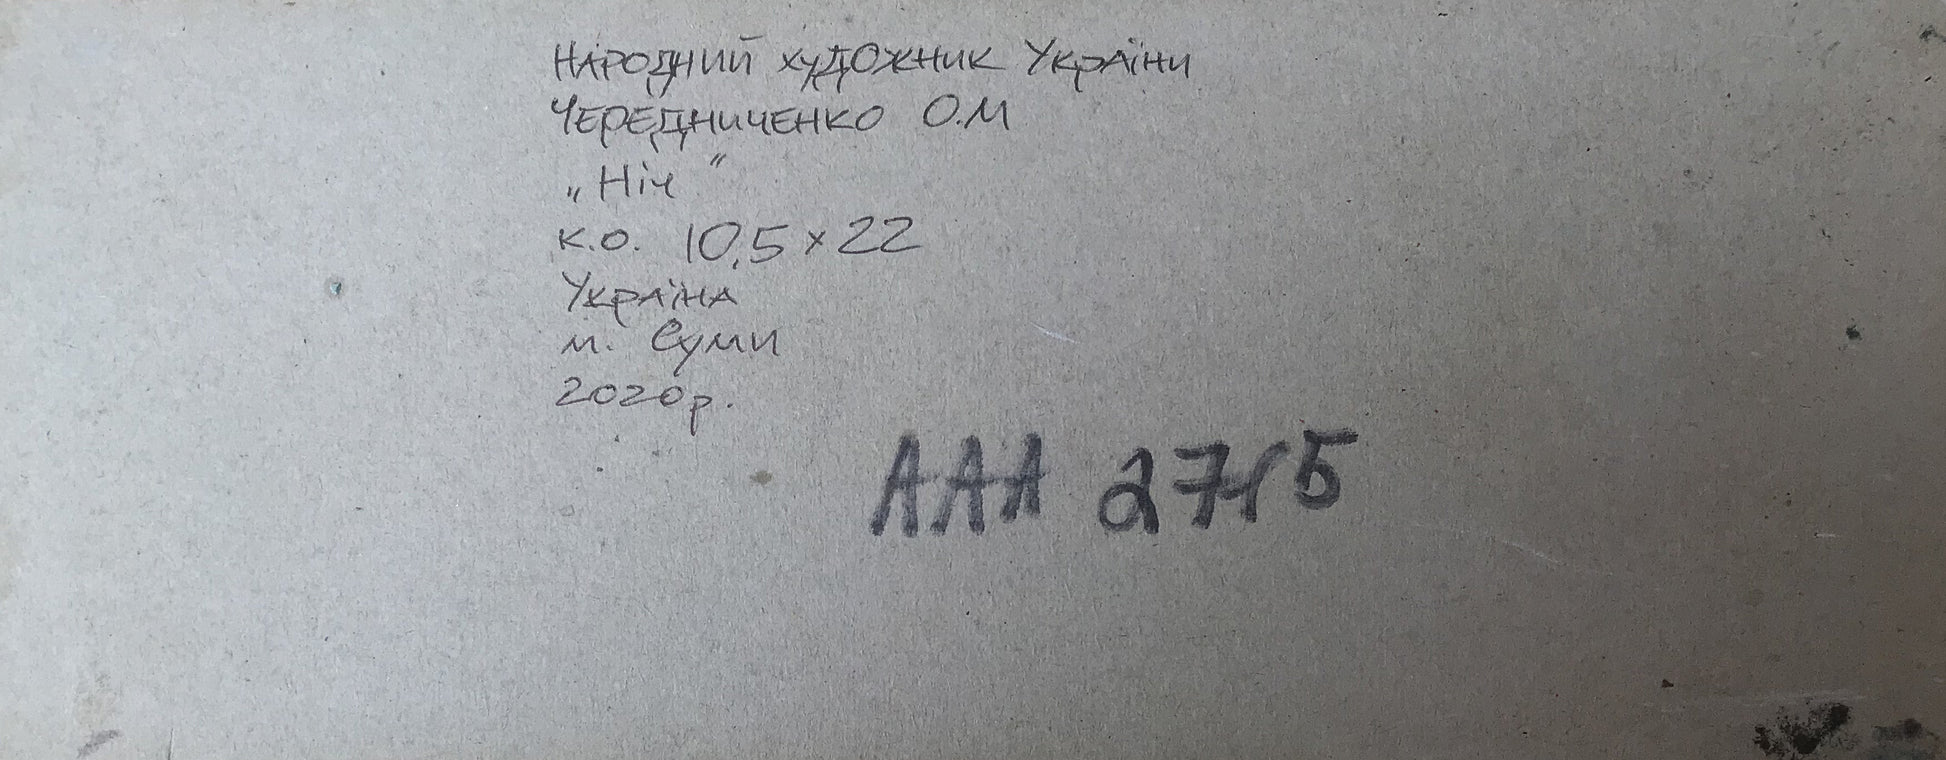 Народний художник України
Чередниченко О.М
„Ніч"
к.о. 10,5 x 22
Україна
м. Суми
2020р.
ААА